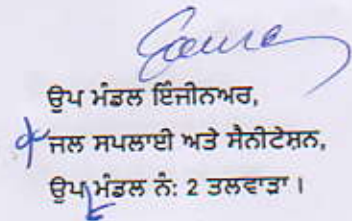 ਉਪ ਮੰਡਲ ਇੰਜੀਨਅਰ,
ਜਲ ਸਪਲਾਈ ਅਤੇ ਸੈਨੀਟੇਸ਼ਨ,
ਉਪ ਮੰਡਲ ਨੰ: 2 ਤਲਵਾੜਾ।